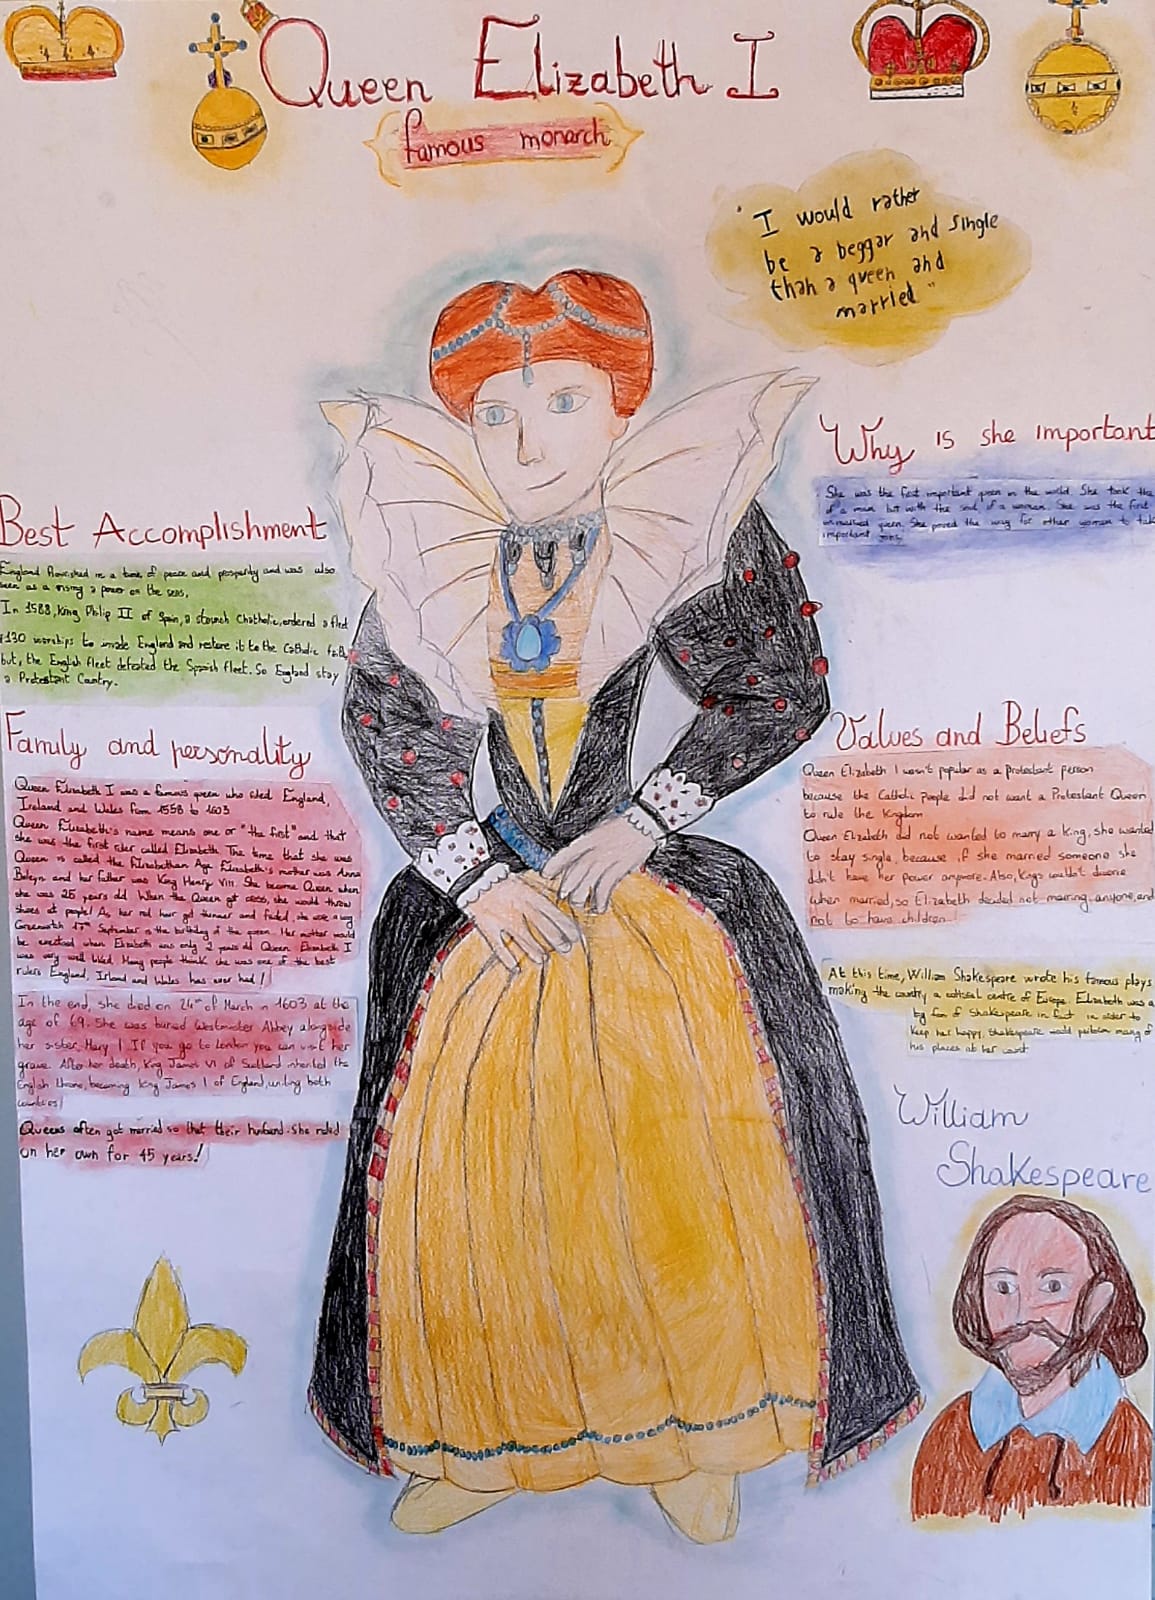 Queen Elizabeth I
famous monarch
"I would rather
be a beggar and single
than a queen and
married"
Why is she important
She was the first important queen in the world. She took the
of a man but with the soul of a woman. She was the first
unmarried queen. She paved the way for other women to take
important jobs.
Best Accomplishment
England flourished in a time of peace and prosperity and was also
seen as a rising a power on the seas.
In 1588, King Philip II of Spain, a staunch Chatholic, ordered a fleet
130 warships to invade England and restore it to the Catholic faith
but, the English fleet defeated the Spanish fleet. So England stay
a Protestant Country.
Family and personality
Queen Elizabeth I was a famous queen who ruled England,
Ireland and Wales from 1558 to 1603
Queen Elizabeth's name means one or "the first" and that
she was the first ruler called Elizabeth. The time that she was
Queen is called the Elizabethan Age. Elizabeth's mother was Anna
Boleyn and her father was King Henry VIII. She became Queen when
she was 25 years old. When the Queen got cross, she would throw
shoes at people! As her red hair got thinner and faded, she wore a wig
17th September is the birthday of the queen. Her mother would
be exectued when Elizabeth was only 2 years old. Queen Elizabeth I
was very well liked. Many people think she was one of the best
rulers England, Irland and Wales has ever had!
In the end, she died on 24th of March in 1603 at the
age of 69. She was buried Westminster Abbey alongside
her sister, Mary I. If you go to London you can visit her
grave. After her death, King James VI of Scotland inherited the
English throne, becoming King James I of England, uniting both
countries!
Queens often got married so that their husband. She ruled
on her own for 45 years!
Values and Beliefs
Queen Elizabeth I wasn't popular as a protestant person
because the Catholic people did not want a Protestant Queen
to rule the Kingdom
Queen Elizabeth did not wanted to marry a King, she wanted
to stay single, because if she married someone she
didn't have her power anymore. Also, Kings wouldn't divorce
when married, so Elizabeth decided not marring anyone, and
not to have children.
At this time, William Shakespeare wrote his famous plays
making the country a cultural centre of Europe. Elizabeth was a
big fan of Shakespeare in fact in order to
Keep her happy, Shakespeare would perform many of
his places at her court
William
Shakespeare